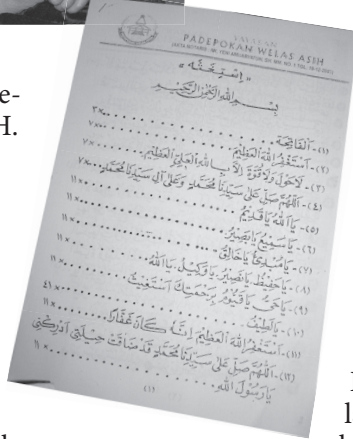 e-
H.
YAYASAN
PADEPOKAN WELAS ASIH
« اِسْتِغَاثَة »
بِسْمِ اللهِ الرَّحْمٰنِ الرَّحِيْمِ
(١)- اَلْفَاتِحَة ................ ×٣
(٢)- اَسْتَغْفِرُ اللهَ الْعَظِيْمَ ................ ×٧
(٣)- لَاحَوْلَ وَلَاقُوَّةَ اِلَّا بِاللهِ الْعَلِيِّ الْعَظِيْمِ ..... ×٧
(٤)- اَللّٰهُمَّ صَلِّ عَلٰى سَيِّدِنَا مُحَمَّدٍ وَعَلٰى اٰلِ سَيِّدِنَا مُحَمَّدٍ... ×٧
(٥)- يَا اَللهُ يَاقَدِيْمُ ................ ×١١
(٦)- يَاسَمِيْعُ يَابَصِيْرُ ................ ×١١
(٧)- يَامُبْدِئُ يَاخَالِقُ ................ ×١١
(٨)- يَاحَفِيْظُ يَانَصِيْرُ يَاوَكِيْلُ يَا اَللهُ ........ ×١١
(٩)- يَاحَيُّ يَاقَيُّوْمُ بِرَحْمَتِكَ اَسْتَغِيْثُ ....... ×١١
(١٠)- يَالَطِيْفُ ................ ×٤١
(١١)- اَسْتَغْفِرُ اللهَ الْعَظِيْمَ اِنَّهُ كَانَ غَفَّارًا ....... ×١١
(١٢)- اَللّٰهُمَّ صَلِّ عَلٰى سَيِّدِنَا مُحَمَّدٍ قَدْ ضَاقَتْ حِيْلَتِيْ اَدْرِكْنِيْ
يَارَسُوْلَ اللهِ ................ ×١١
(١)